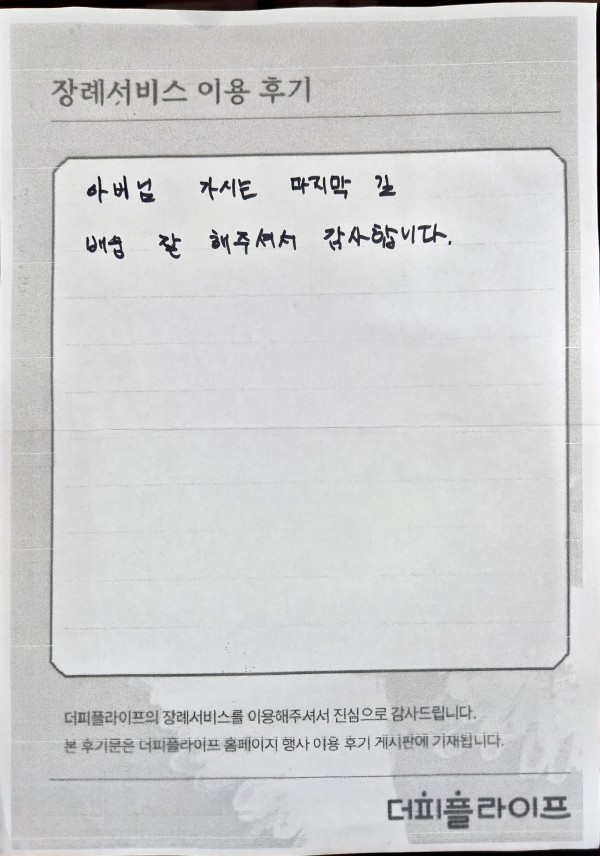 장례서비스 이용 후기
아버님 가시는 마지막 길
배웅 잘 해주셔서 감사합니다.
더피플라이프의 장례서비스를 이용해주셔서 진심으로 감사드립니다.
본 후기문은 더피플라이프 홈페이지 행사 이용 후기 게시판에 기재됩니다.
더피플라이프